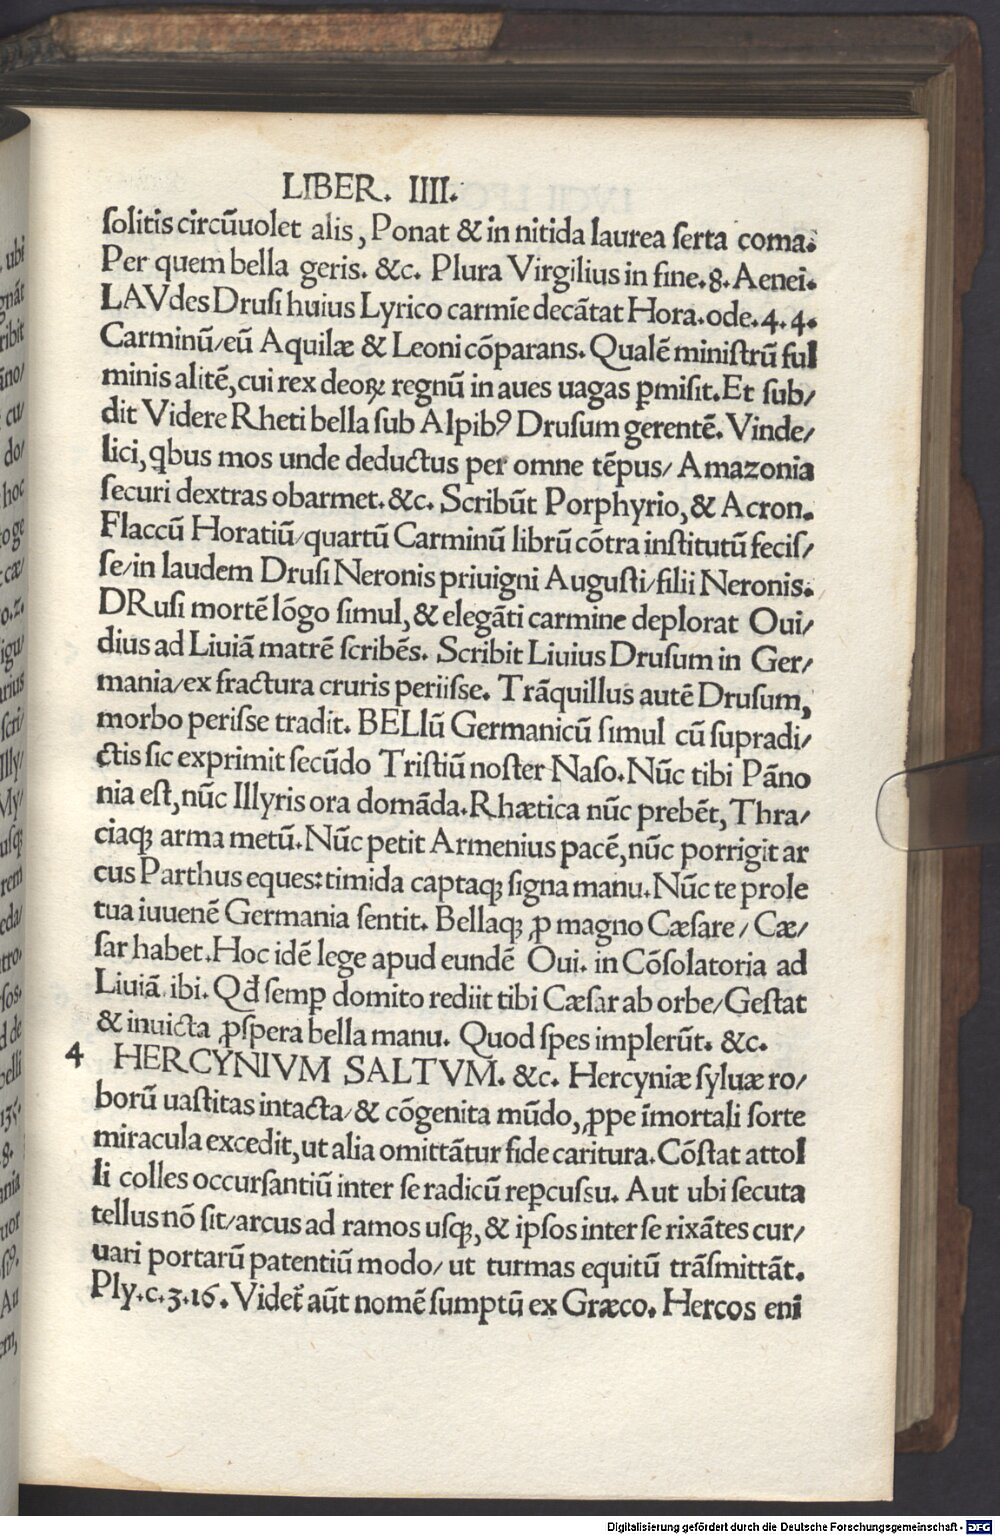 LIBER. IIII.
ſolitis circūuolet alis, Ponat & in nitida laurea ſerta coma.
Per quem bella geris. &c. Plura Virgilius in fine.8.Aenei.
LAVdes Druſi huius Lyrico carmīe decātat Hora.ode.4.4.
Carminū/eū Aquilæ & Leoni cōparans. Qualē miniſtrū ful
minis alitē, cui rex deoꝝ regnū in aues uagas ꝑmiſit. Et ſub/
dit Videre Rheti bella ſub Alpibꝰ Druſum gerentē. Vinde/
lici, qbus mos unde deductus per omne tēpus/ Amazonia
ſecuri dextras obarmet. &c. Scribūt Porphyrio, & Acron.
Flaccū Horatiū/quartū Carminū librū cōtra inſtitutū feciſ/
ſe/in laudem Druſi Neronis priuigni Auguſti/filii Neronis.
DRuſi mortē lōgo ſimul, & elegāti carmine deplorat Oui/
dius ad Liuiā matrē ſcribēs. Scribit Liuius Druſum in Ger/
mania/ex fractura cruris periiſse. Trāquillus autē Druſum,
morbo periſse tradit. BELlū Germanicū ſimul cū ſupradi/
ctis ſic exprimit ſecūdo Triſtiū noſter Naſo. Nūc tibi Pāno
nia eſt, nūc Illyris ora domāda. Rhætica nūc prebēt, Thra/
ciaqꝫ arma metū. Nūc petit Armenius pacē, nūc porrigit ar
cus Parthus eques: timida captaqꝫ ſigna manu. Nūc te prole
tua iuuenē Germania ſentit. Bellaqꝫ ꝓ magno Cæſare/ Cæ/
ſar habet. Hoc idē lege apud eundē Oui. in Cōſolatoria ad
Liuiā. ibi. Qđ ſemꝑ domito rediit tibi Cæſar ab orbe/Geſtat
& inuicta ꝓſpera bella manu. Quod ſpes implerūt. &c.
4 HERCYNIVM SALTVM. &c. Hercyniæ ſyluæ ro/
borū uaſtitas intacta/ & cōgenita mūdo, ꝓpe īmortali ſorte
miracula excedit, ut alia omittātur fide caritura. Cōſtat attol
li colles occurſantiū inter ſe radicū reꝑcuſsu. Aut ubi ſecuta
tellus nō ſit/arcus ad ramos uſqꝫ, & ipſos inter ſe rixātes cur/
uari portarū patentiū modo/ ut turmas equitū trāſmittāt.
Ply.c.3.16. Videt̄ aūt nomē ſumptū ex Græco. Hercos eni
ubi
gnāt
ribit
āno/
cu/
do/
hoc
to ge
cæ/
o.2.
igu/
arius
ſcri/
Illy/
My/
uſqꝫ
rem
eda/
tro.
ſos.
d de
belli
135.
.8.
ania
uor
ſꝰ.
Au
em,
Digitalisierung gefördert durch die Deutsche Forschungsgemeinschaft - DFG